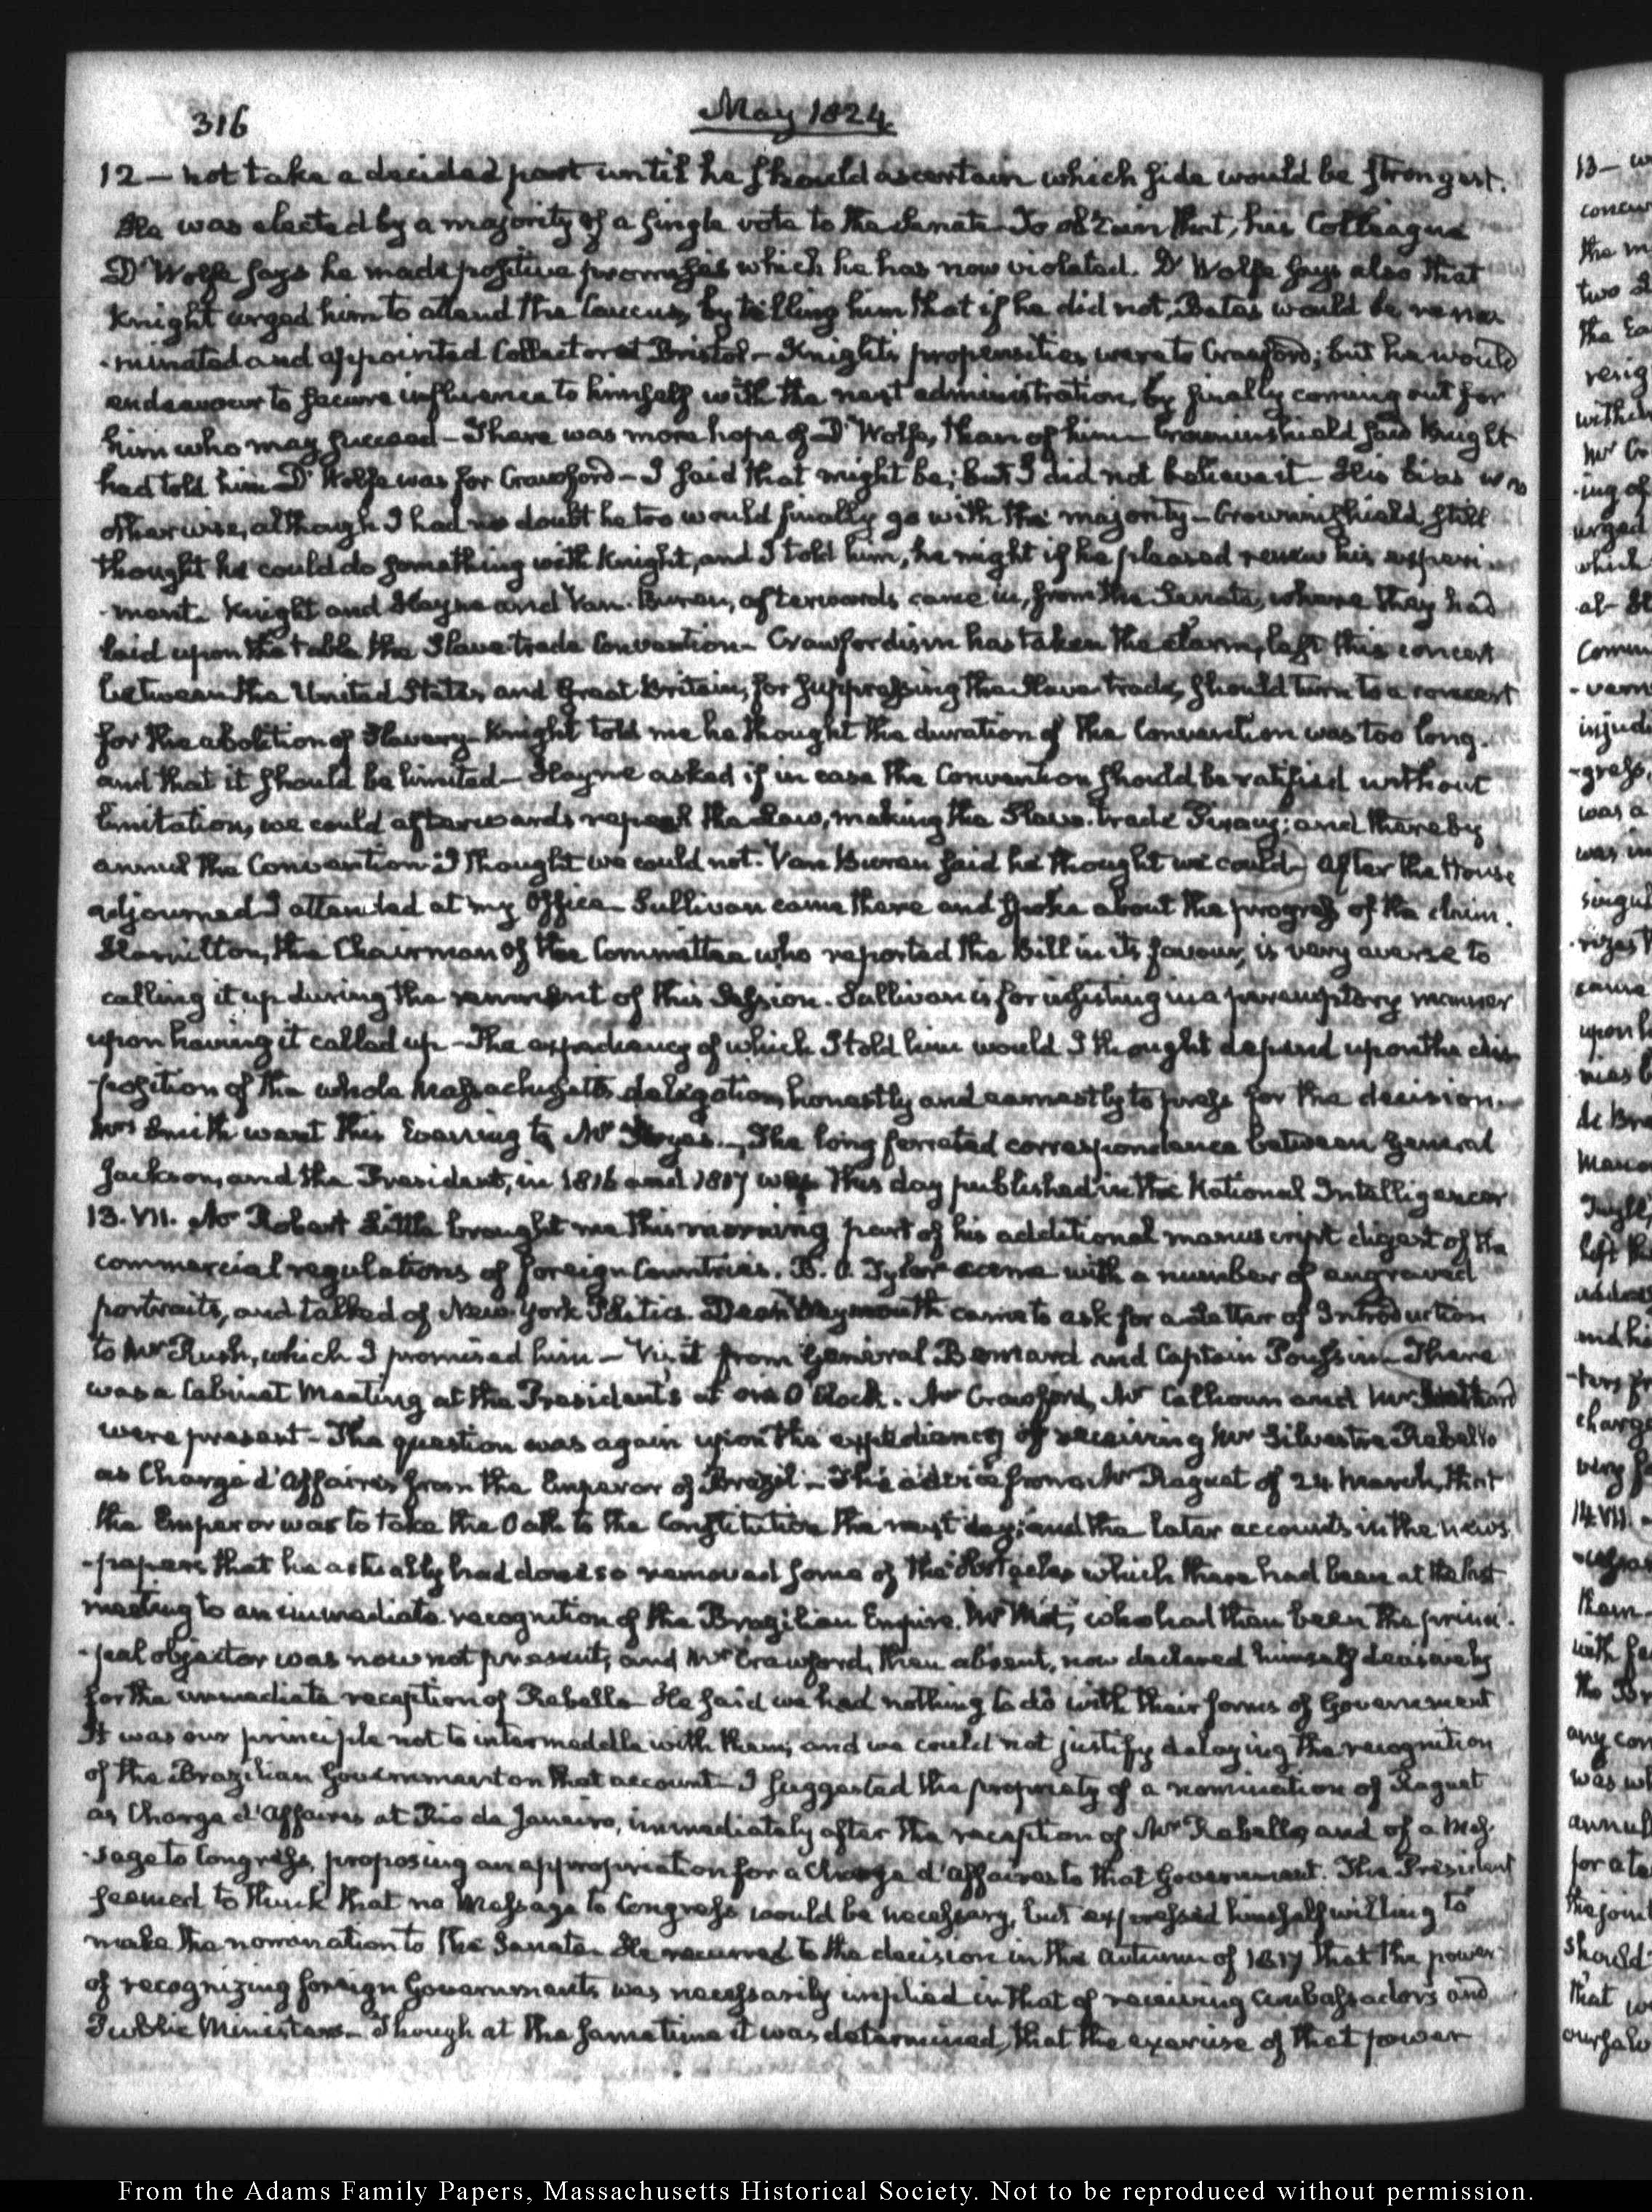 316
May 1824.
12 — not take a decided part until he should ascertain which side would be strongest.
He was elected by a majority of a single vote to the Senate — To obtain that, his Colleague
D'Wolfe says he made positive promises which he has now violated. D'Wolfe says also that
Knight urged him to attend the Caucus, by telling him that if he did not, Bates would be reno-
-minated and appointed Collector at Bristol — Knight's propensities were to Crawford; but he would
endeavour to secure influence to himself with the next administration, by finally coming out for
him who may succeed — There was more hope of D'Wolfe, than of him — Crowninshield said Knight
had told him D'Wolfe was for Crawford — I said that might be; but I did not believe it — His bias was
otherwise, although I had no doubt he too would finally go with the majority — Crowninshield still
thought he could do something with Knight, and I told him, he might if he pleased renew his experi-
-ment. Knight and Hayne and Van-Buren, afterwards came in, from the Senate, where they had
laid upon the table the Slave trade Convention — Crawfordism has taken the alarm, lest this concert
between the United States and Great Britain, for suppressing the Slave trade, should turn to a concert
for the abolition of Slavery — Knight told me he thought the duration of the Convention was too long.
and that it should be limited — Hayne asked if in case the Convention should be ratified without
limitation, we could afterwards repeal the Law, making the Slave-trade Piracy; and thereby
annul the Convention: I thought we could not. Van Buren said he thought we could — After the House
adjourned I attended at my Office — Sullivan came there and spoke about the progress of the claim.
Hamilton, the Chairman of the Committee who reported the Bill in its favour, is very averse to
calling it up during the remnant of this Session. Sullivan is for insisting in a peremptory manner
upon having it called up — The expediency of which I told him would I thought depend upon the dis-
-position of the whole Massachusetts delegation, honestly and earnestly to press for the decision —
Mrs Smith went this Evening to Mr — The long ferreted correspondence between General
Jackson, and the President, in 1816 and 1817 was this day published in the National Intelligencer
13. VII. Mr Robert Little brought me this morning part of his additional manuscript digest of the
commercial regulations of foreign Countries. B. O. Tyler came with a number of engraved
portraits, and talked of New-York Politics — Dean Weymouth came to ask for a Letter of Introduction
to Mr Rush, which I promised him — Visit from General Bernard and Captain Poussin — There
was a Cabinet Meeting at the President's at one O'Clock. Mr Crawford, Mr Calhoun and Mr Southard
were present — The question was again upon the expediency of receiving Mr Silvestre Rebello
as Chargé d'Affaires from the Emperor of Brazil — The advice from Mr Raguet of 24 March, that
the Emperor was to take the Oath to the Constitution the next day; and the later accounts in the news
-papers that he actually had done so removed some of the obstacles which there had been at the last
meeting to an immediate recognition of the Brazilian Empire. Mr Wirt, who had then been the princi-
-pal objector was now not present, and Mr Crawford, then absent, now declared himself decisively
for the immediate reception of Rebello — He said we had nothing to do with their forms of Government
It was our principle not to intermeddle with them, and we could not justify delaying the recognition
of the Brazilian Government on that account — I suggested the propriety of a nomination of Raguet
as Chargé d'Affaires at Rio de Janeiro, immediately after the reception of Mr Rebello, and of a Mes-
-sage to Congress, proposing an appropriation for a Chargé d'Affaires to that Government. The President
seemed to think that no Message to Congress would be necessary, but expressed himself willing to
make the nomination to the Senate — He recurred to the decision in the Autumn of 1817 that the power
of recognizing foreign Governments was necessarily implied in that of receiving Ambassadors and
Public Ministers — Though at the same time it was determined, that the exercise of that power
From the Adams Family Papers, Massachusetts Historical Society. Not to be reproduced without permission.